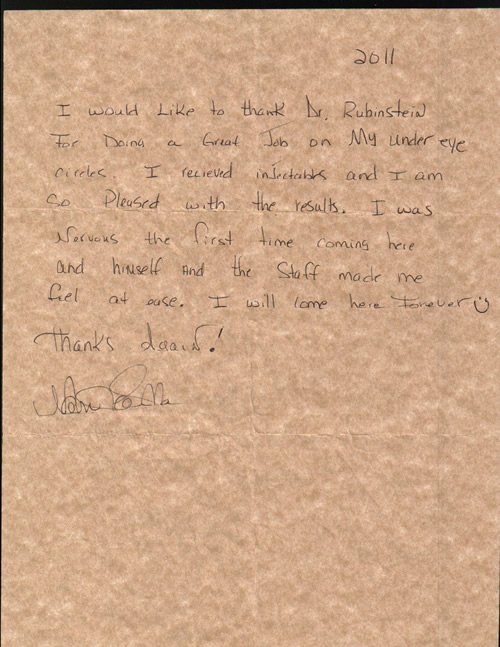 2011
I would Like to thank Dr. Rubinstein
For Doing a Great Job on My under eye
circles. I recieved injectables and I am
so Pleased with the results. I was
Nervous the first time coming here
and himself AND the Staff made me
feel at ease. I will come here Forever
Thanks Again!